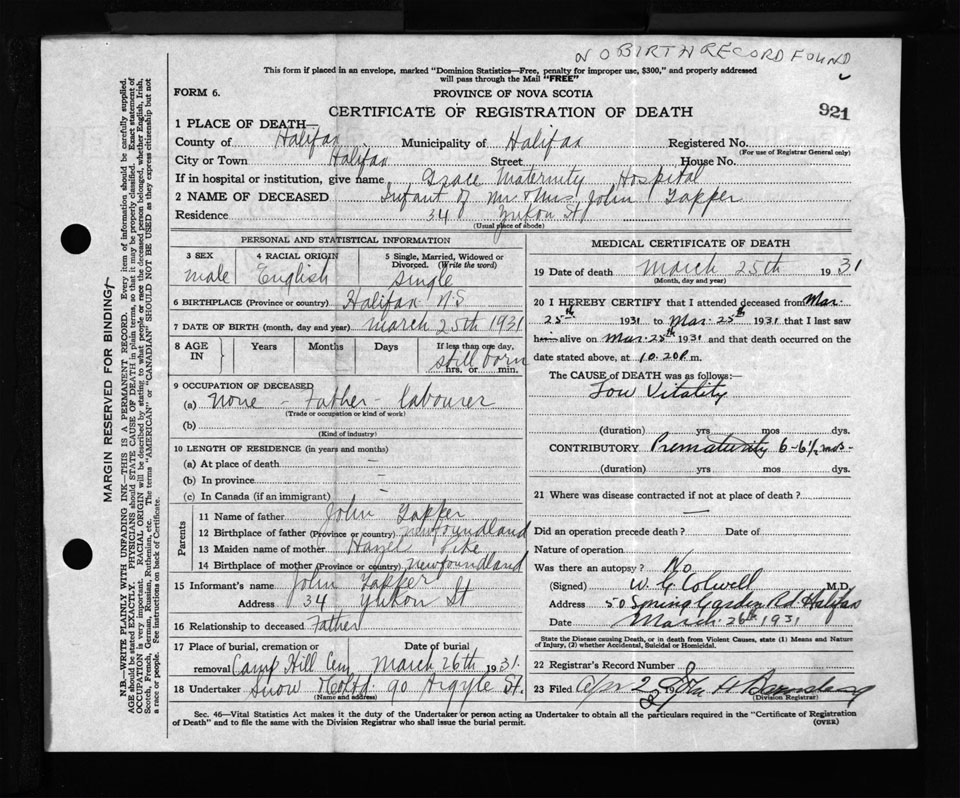 NO BIRTH RECORD FOUND
This form if placed in an envelope, marked "Dominion Statistics—Free, penalty for improper use, $300," and properly addressed
will pass through the Mail "FREE"
FORM 6. PROVINCE OF NOVA SCOTIA
CERTIFICATE OF REGISTRATION OF DEATH 921
1 PLACE OF DEATH—
County of Halifax Municipality of Halifax Registered No.
(For use of Registrar General only)
City or Town Halifax Street House No.
If in hospital or institution, give name Grace Maternity Hospital
2 NAME OF DECEASED Infant of Mr. & Mrs. John Tapper
Residence 34 Yukon St
(Usual place of abode)
PERSONAL AND STATISTICAL INFORMATION
3 SEX 4 RACIAL ORIGIN 5 Single, Married, Widowed or
Divorced. (Write the word)
male English Single
6 BIRTHPLACE (Province or country) Halifax N.S
7 DATE OF BIRTH (month, day and year) March 25th 1931
8 AGE IN Years Months Days If less than one day
still born
hrs. or min.
9 OCCUPATION OF DECEASED
(a) None - Father - Labourer
(Trade or occupation or kind of work)
(b)
(Kind of industry)
10 LENGTH OF RESIDENCE (in years and months)
(a) At place of death —
(b) In province —
(c) In Canada (if an immigrant) —
Parents
11 Name of father John Tapper
12 Birthplace of father (Province or country) Newfoundland
13 Maiden name of mother Hazel Pike
14 Birthplace of mother (Province or country) Newfoundland
15 Informant's name John Tapper
Address 34 Yukon St
16 Relationship to deceased Father
17 Place of burial, cremation or Date of burial
removal Camp Hill Cem March 26th 1931.
18 Undertaker Snow & Co Ltd. 90 Argyle St.
(Name and address)
MEDICAL CERTIFICATE OF DEATH
19 Date of death March 25th 1931
(Month, day and year)
20 I HEREBY CERTIFY that I attended deceased from Mar.
25th 1931 to Mar. 25th 1931 that I last saw
him alive on Mar. 25th 1931 and that death occurred on the
date stated above, at 10.20 P.m.
The CAUSE of DEATH was as follows:—
Low Vitality
(duration) yrs mos dys.
CONTRIBUTORY Prematurity 6-6½ mos -
(duration) yrs mos dys.
21 Where was disease contracted if not at place of death?
—
Did an operation precede death? Date of
Nature of operation
Was there an autopsy? No
(Signed) W. G. Colwell M.D.
Address 50 Spring Garden Rd Halifax
Date March 26th 1931
State the Disease causing Death, or in death from Violent Causes, state (1) Means and Nature
of Injury, (2) whether Accidental, Suicidal or Homicidal.
22 Registrar's Record Number
23 Filed Apr 2
(Division Registrar)
Sec. 46—Vital Statistics Act makes it the duty of the Undertaker or person acting as Undertaker to obtain all the particulars required in the "Certificate of Registration
of Death" and to file the same with the Division Registrar who shall issue the burial permit. (OVER)
MARGIN RESERVED FOR BINDING
N.B.—WRITE PLAINLY WITH UNFADING INK—THIS IS A PERMANENT RECORD. Every item of information should be carefully supplied.
AGE should be stated EXACTLY. PHYSICIANS should STATE CAUSE OF DEATH in plain terms, so that it may be properly classified. Exact statement of
OCCUPATION is very important. RACIAL ORIGIN will be described by stating to what people or race the deceased person belonged, whether English, Irish,
Scotch, French, German, Russian, Ruthenian, etc. The terms "AMERICAN" or "CANADIAN" SHOULD NOT BE USED as they express citizenship but not
a race or people. See instructions on back of Certificate.